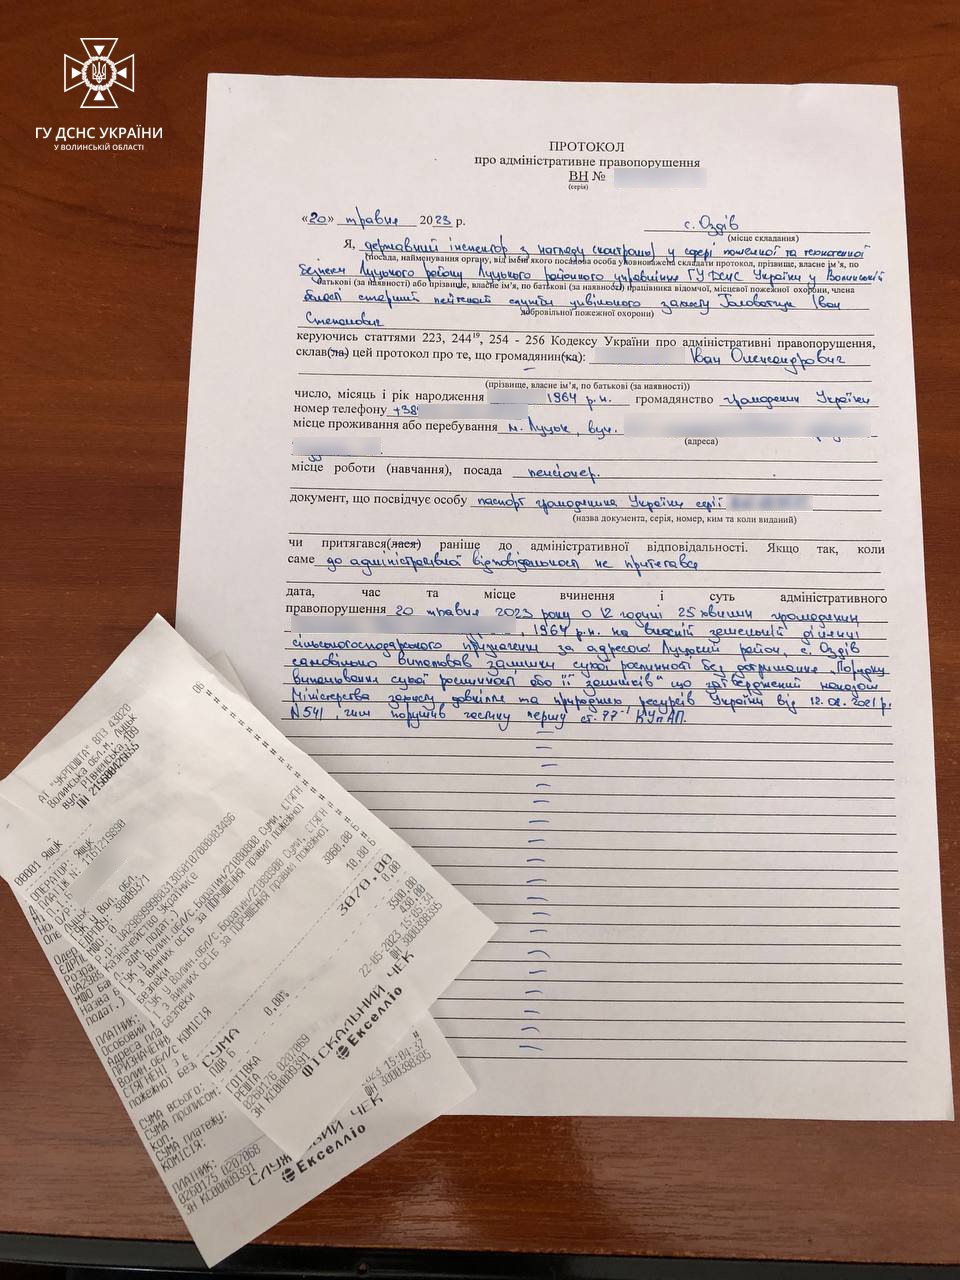 ГУ ДСНС УКРАЇНИ
У ВОЛИНСЬКІЙ ОБЛАСТІ
ПРОТОКОЛ
про адміністративне правопорушення
ВН №
(серія)
«20» травня 2023 р. с. Оздів
(місце складання)
Я, державний інспектор з нагляду (контролю) у сфері пожежної та техногенної
(посада, найменування органу, від імені якого посадова особа уповноважена складати протокол, прізвище, власне ім’я, по
безпеки Луцького району Луцького районного управління ГУ ДСНС України у Волинській
батькові (за наявності) або прізвище, власне ім’я, по батькові (за наявності) працівника відомчої, місцевої пожежної охорони, члена
області старший лейтенант служби цивільного захисту Головатчик Іван
добровільної пожежної охорони)
Степанович
керуючись статтями 223, 244¹⁹, 254 - 256 Кодексу України про адміністративні правопорушення,
склав(ла) цей протокол про те, що громадянин(ка): Іван Олександрович
(прізвище, власне ім’я, по батькові (за наявності))
число, місяць і рік народження 1964 р.н. громадянство громадянин України
номер телефону +38
місце проживання або перебування м. Луцьк, вул.
(адреса)
місце роботи (навчання), посада пенсіонер.
документ, що посвідчує особу паспорт громадянина України серії
(назва документа, серія, номер, ким та коли виданий)
чи притягався(лася) раніше до адміністративної відповідальності. Якщо так, коли
саме до адміністративної відповідальності не притягався
дата, час та місце вчинення і суть адміністративного
правопорушення 20 травня 2023 року о 12 годині 25 хвилин громадянин
, 1964 р.н. на власній земельній ділянці
сільськогосподарського призначення за адресою: Луцький район, с. Оздів
самовільно випалював залишки сухої рослинності без дотримання „Порядку
випалювання сухої рослинності або її залишків" що затверджений наказом
Міністерства захисту довкілля та природних ресурсів України від 12.08.2021 р.
N541, чим порушив частину першу ст. 77-¹ КУпАП.
АТ "УКРПОШТА" ВПЗ 43020
ВОЛИНСЬКА ОБЛ.М. ЛУЦЬК
ВУЛ. РІВНЕНСЬКА,109
ПН 215600426655
06
00001 Ящук
ОПЕРАТОР: Ящук
ПЛАТІЖ N: 1161219890
ГУК у Вол. обл.
ЄДРПОУ: 38009371
МФО: 0
Р.р: UA298999980313050107000003496
Казначейство Україн
ГУК у Волин.обл/с.Боратин/21080900 Суми, СТЯГН
І З ВИННИХ ОСІБ ЗА ПОРУШЕННЯ ПРАВИЛ ПОЖЕЖНОЇ
БЕЗПЕКИ 3060.00 Б
КОМІСІЯ 10.00 Б
СУМА 3070.00
ПДВ Б 0,00% 0,00
ГОТІВКА 3500.00
РЕШТА 430.00
0260176 0207069 22-05-2023 15:05:31
ЗН КС00009391 ФН 3000398395
ФІСКАЛЬНИЙ ЧЕК
Екселліо
ПЛАТНИК:
ОСОБОВИЙ
Адреса пла
ПРИЗНАЧЕНН
Волин.обл/с
СТЯГНЕНІ З В
пожежної без
СУМА всього:
СУМА прописом:
коп.
СУМА платежу:
КОМІСІЯ:
ПЛАТНИК:
0260175 0207068 15:04:37
ЗН КС00009391 ФН 3000398395
Екселліо